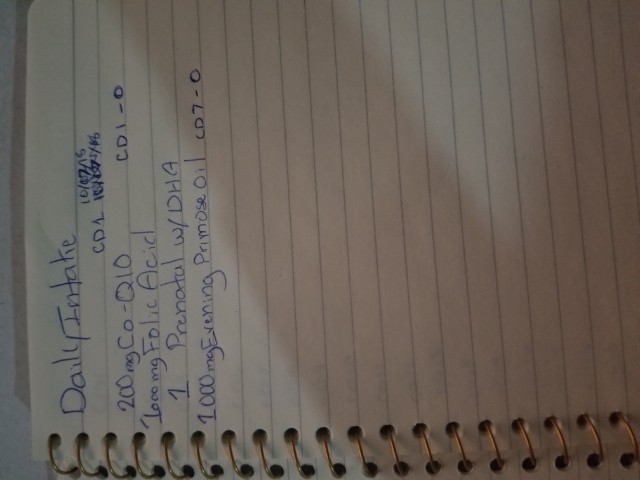 Daily Intake
CD1 10/07/15
200mg Co-Q10 CD1-O
1000mg Folic Acid
1 Prenatal w/DHA
1000mg Evening Primose Oil CD7-O